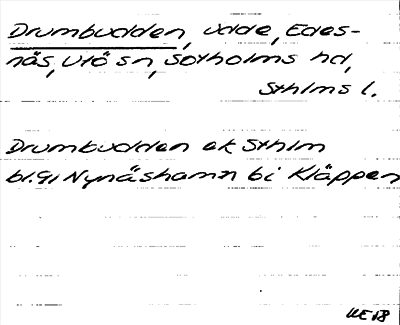 Drumbudden, udde, Edes-
näs, Utö sn, Sotholms hd,
Sthlms l.
Drumbudden ek Sthlm
bl. 91 Nynäshamn bi Kläppen